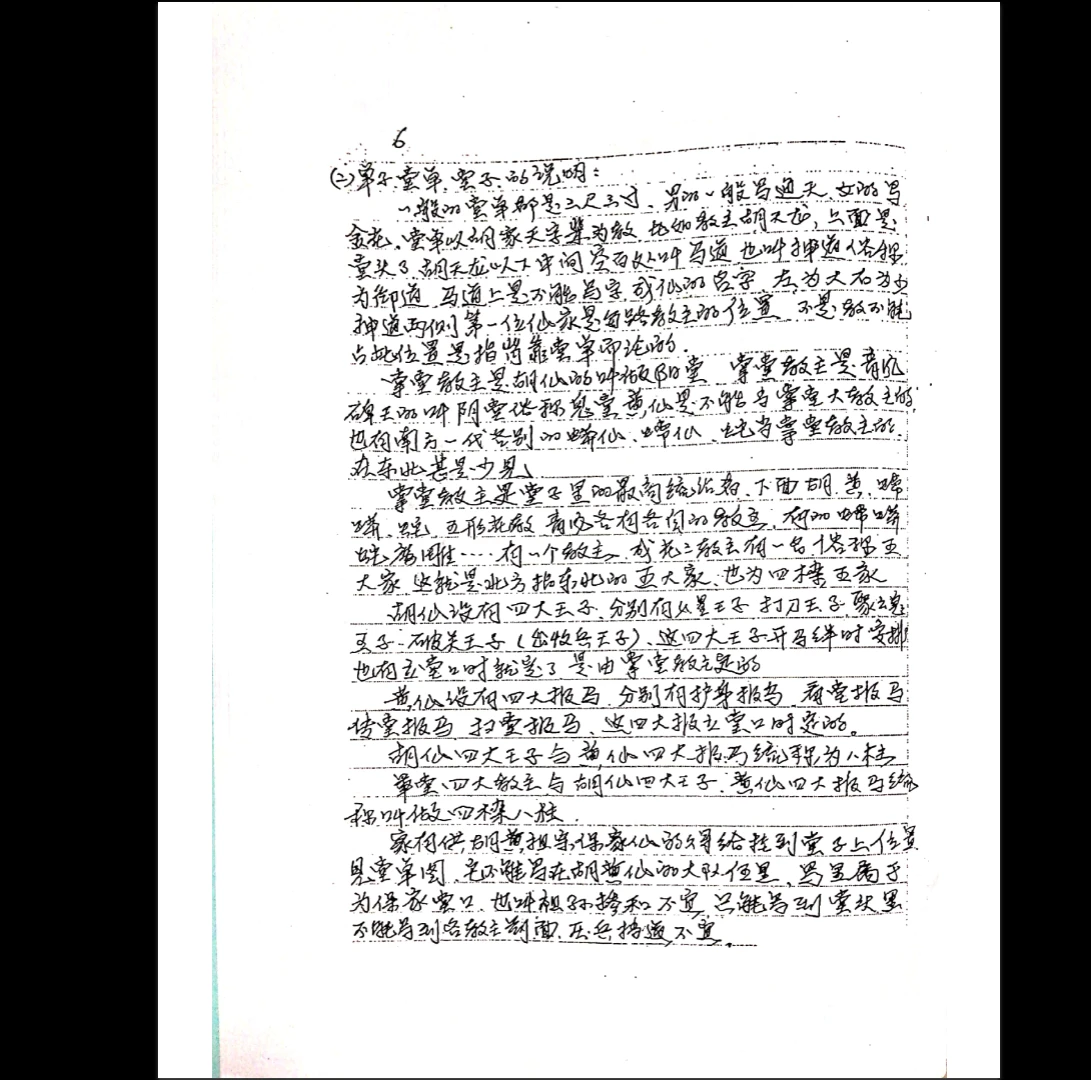 6
(二)单子、堂单、堂子、的说明：
一般的堂单都是三尺三寸、男的一般写通天、女的写
金花、堂单以胡家天字辈为教、比如教主胡天龙，上面是
堂头了、胡天龙以下中间空百处叫马道也叫神道俗称
为御道、马道上是不能写字、或仙的名字、左为大右为少
神道两侧第一位仙家是每路教主的位置、不是教不能
占此位置是指背靠堂单而论的.
掌堂教主是胡仙的叫做阳堂 掌堂教主是青风
碑王的叫阴堂俗称鬼堂黄仙是不能当掌堂大教主的,
也有南方一代各别的蟒仙、蟐仙、它当掌堂教主的
在东北甚是少见
掌堂教主是堂子里的最高统治者、下面胡、黄、
教 青风各有各自的教主、有的
……有一个教主、或花二教主有一名俗称五
大家 这就是北方指东北的五大家、也为四梁五家
胡仙设有四大王子、分别有 王子 打刀王子、
王子、破关王子（ 收兵王子）、这四大王子开马绊时安排
也有立堂口时就定了 是由掌堂教主定的
黄仙设有四大报马、分别有护身报马 看堂报马
传堂报马、扫堂报马、这四大报立堂口时定的。
胡仙四大王子与黄仙四大报马统称为八柱
掌堂四大教主与胡仙四大王子、黄仙四大报马统
称叫做四梁八柱.
家有供胡黄祖宗保家仙的得给挂到堂子上位置
见堂单图、它不能写在胡黄仙的大队伍里、写里属于
为保家堂口、也叫祖孙掺和不宜、只能写到堂头里
不能写到各教主前面、压兵挡道不宜.